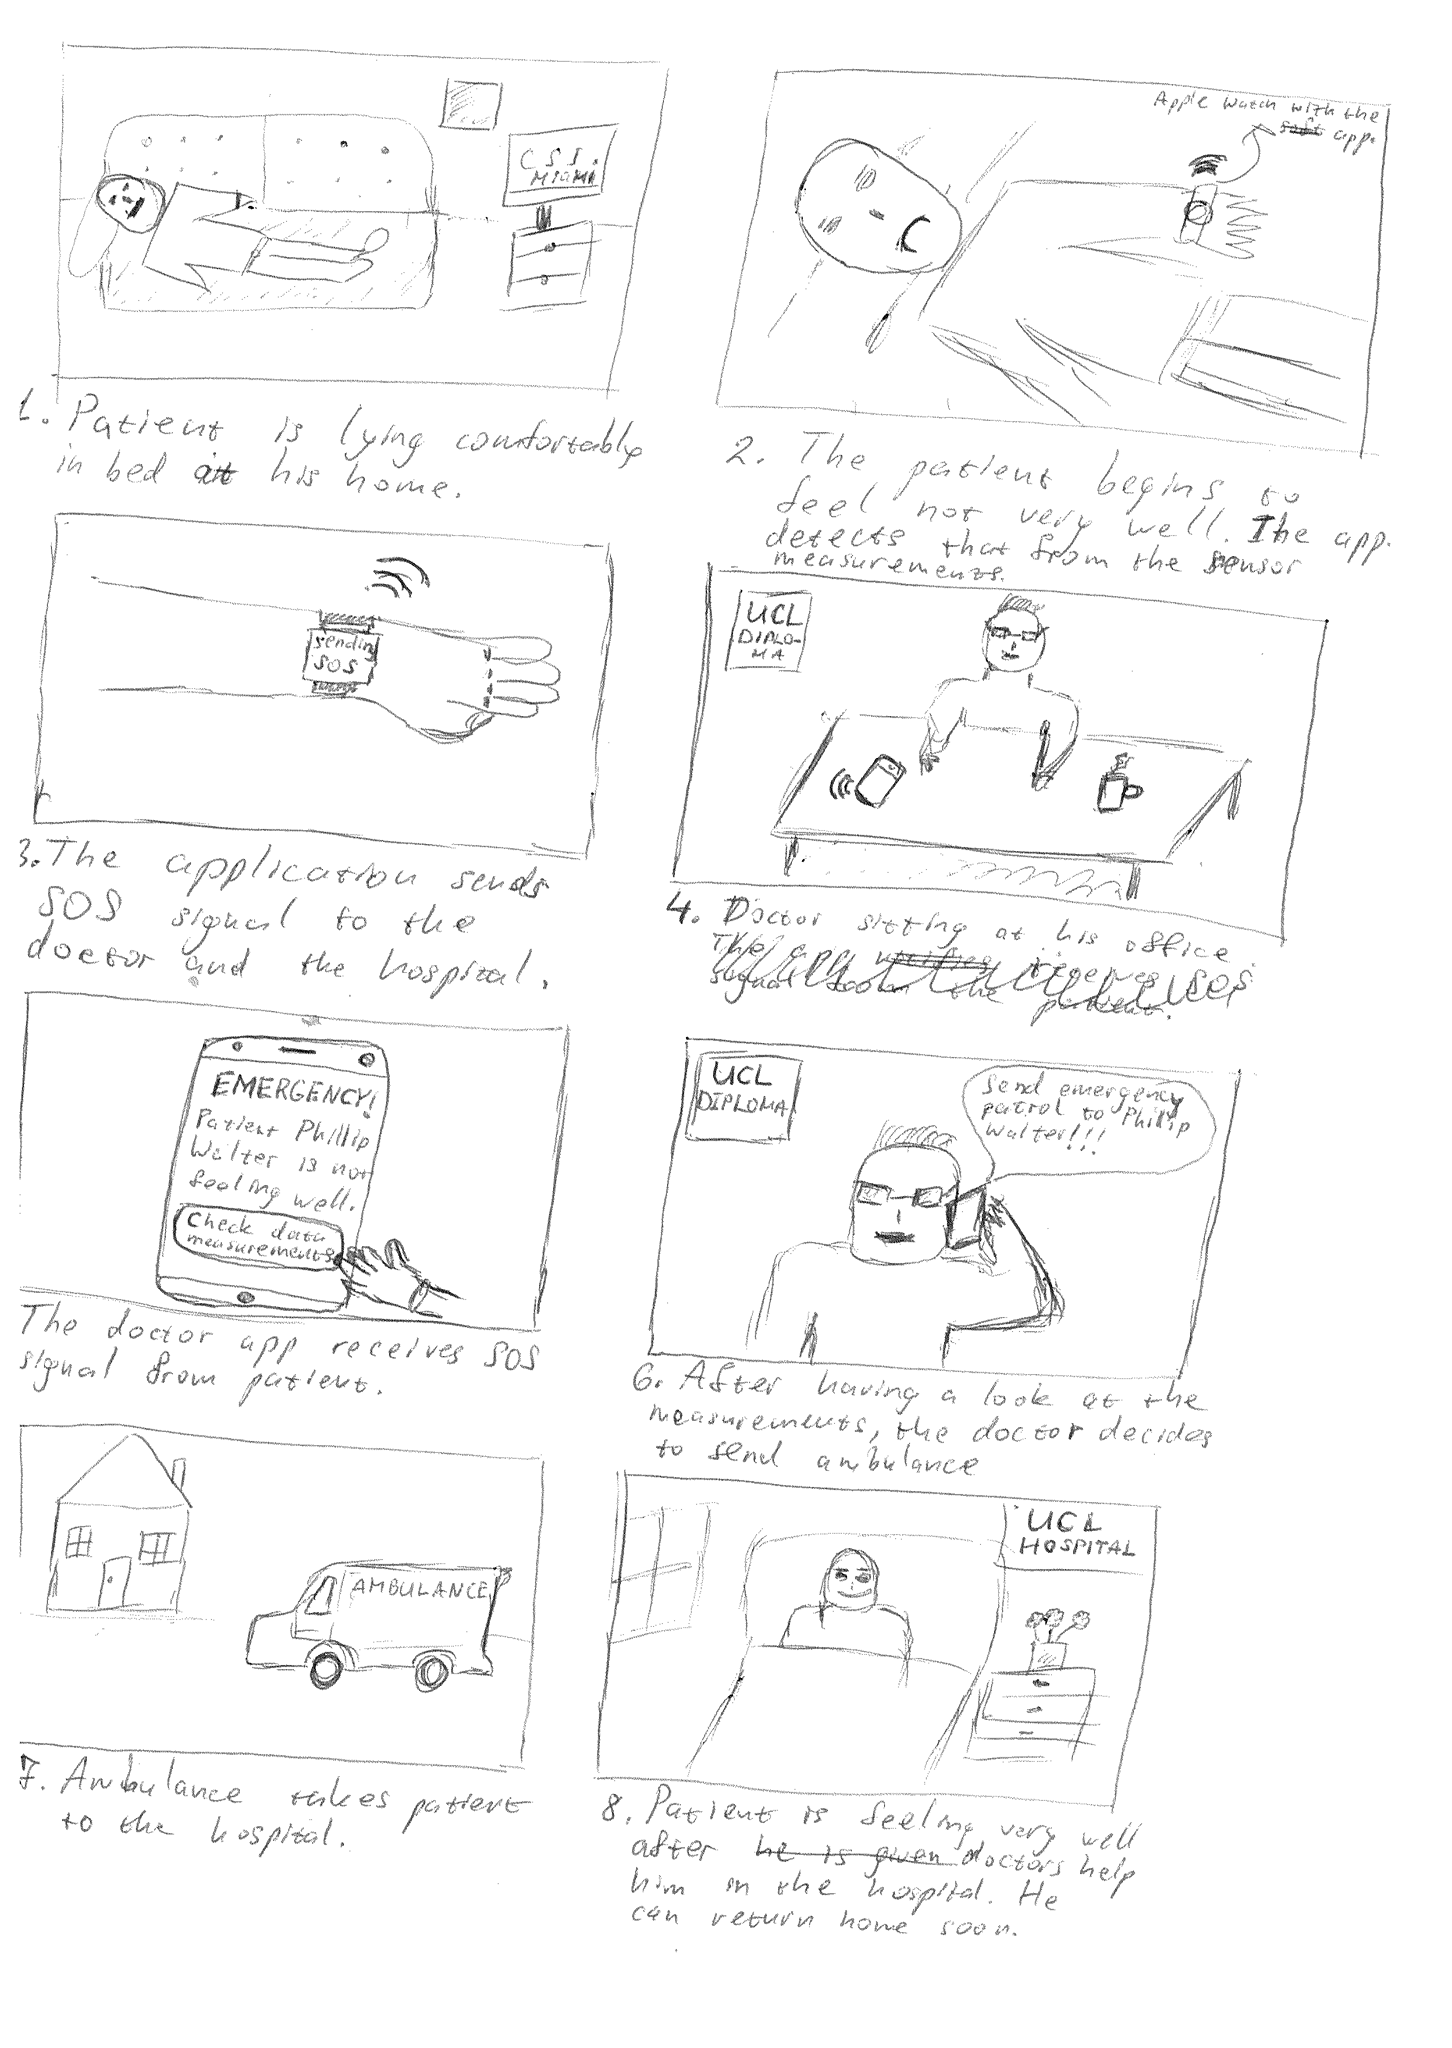 C.S.I.
MIAMI
1. Patient is lying comfortably
in bed at his home.
Apple Watch with the
app.
2. The patient begins to
feel not very well. The app.
detects that from the sensor
measurements.
sending
SOS
3. The application sends
SOS signal to the
doctor and the hospital.
UCL
DIPLO-
MA
4. Doctor sitting at his office.
EMERGENCY!
Patient Phillip
Walter is not
feeling well.
Check data
measurements
The doctor app receives SOS
signal from patient.
UCL
DIPLOMA
Send emergency
patrol to Phillip
Walter!!!
6. After having a look at the
measurements, the doctor decides
to send ambulance
AMBULANCE
7. Ambulance takes patient
to the hospital.
UCL
HOSPITAL
8. Patient is feeling very well
after he is given doctors help
him in the hospital. He
can return home soon.